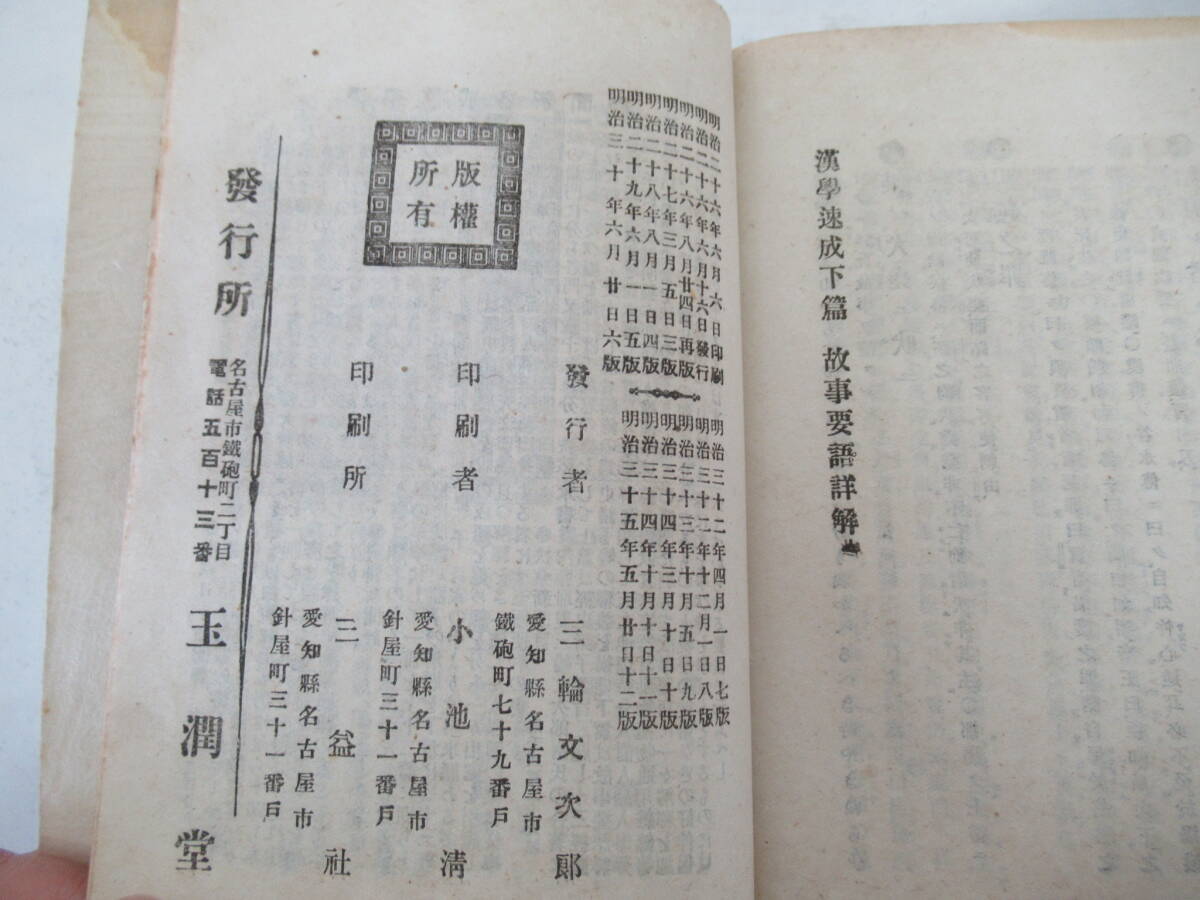 漢學速成下篇 故事要語詳解畢
明治二十六年六月六日印刷
明治二十六年六月十六日發行
明治二十六年八月廿四日再版
明治二十七年三月五日三版
明治二十八年八月一日四版
明治二十九年六月一日五版
明治三十年六月廿日六版
明治三十二年四月一日七版
明治三十二年十二月一日八版
明治三十三年十月五日九版
明治三十四年三月十日十版
明治三十四年十月十日十一版
明治三十五年五月廿日十二版
版權
所有
發行者
愛知縣名古屋市
鐵砲町七十九番戶
三輪文次郞
印刷者
愛知縣名古屋市
針屋町三十一番戶
小池淸
印刷所
愛知縣名古屋市
針屋町三十一番戶
三益社
發行所
名古屋市鐵砲町二丁目
電話五百十三番
玉潤堂